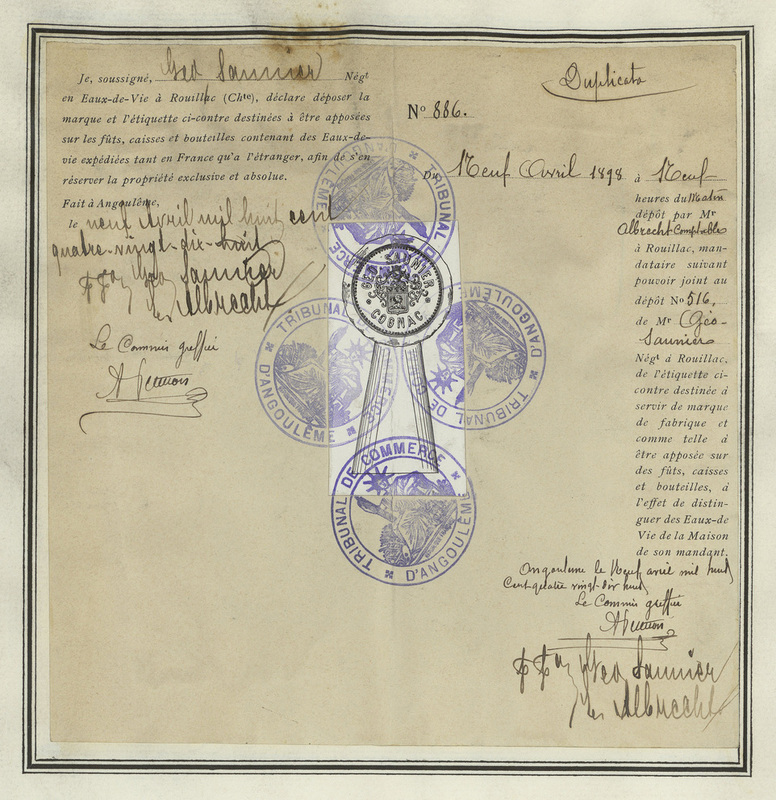 Je, soussigné, Geo Saunier Négt
en Eaux-de-Vie à Rouillac (Chte), déclare déposer la
marque et l'étiquette ci-contre destinées à être apposées
sur les fûts, caisses et bouteilles contenant des Eaux-de-
vie expédiées tant en France qu'a l'étranger, afin de s'en
réserver la propriété exclusive et absolue.
Fait à Angoulême,
le neuf Avril mil huit cent
quatre-vingt-dix-huit
Geo Saunier
Albrecht
Le Commis greffier
Duplicata
No 886.
Du Neuf Avril 1898 à Neuf
heures du Matin
dépôt par Mr
Albrecht Comptable
à Rouillac, man-
dataire suivant
pouvoir joint au
dépôt No 516,
de Mr Géo
Saunier
Négt à Rouillac,
de l'étiquette ci-
contre destinée à
servir de marque
de fabrique et
comme telle à
être apposée sur
des fûts, caisses
et bouteilles, à
l'effet de distin-
guer des Eaux-de
Vie de la Maison
de son mandant.
Angoulême le Neuf avril mil huit
Cent quatre vingt-dix huit
Le Commis greffier
Geo Saunier
Albrecht
GEO SAUNIER
COGNAC
TRIBUNAL DE COMMERCE
D'ANGOULÊME
TRIBUNAL DE COMMERCE
D'ANGOULÊME
TRIBUNAL DE COMMERCE
D'ANGOULÊME
TRIBUNAL DE COMMERCE
D'ANGOULÊME